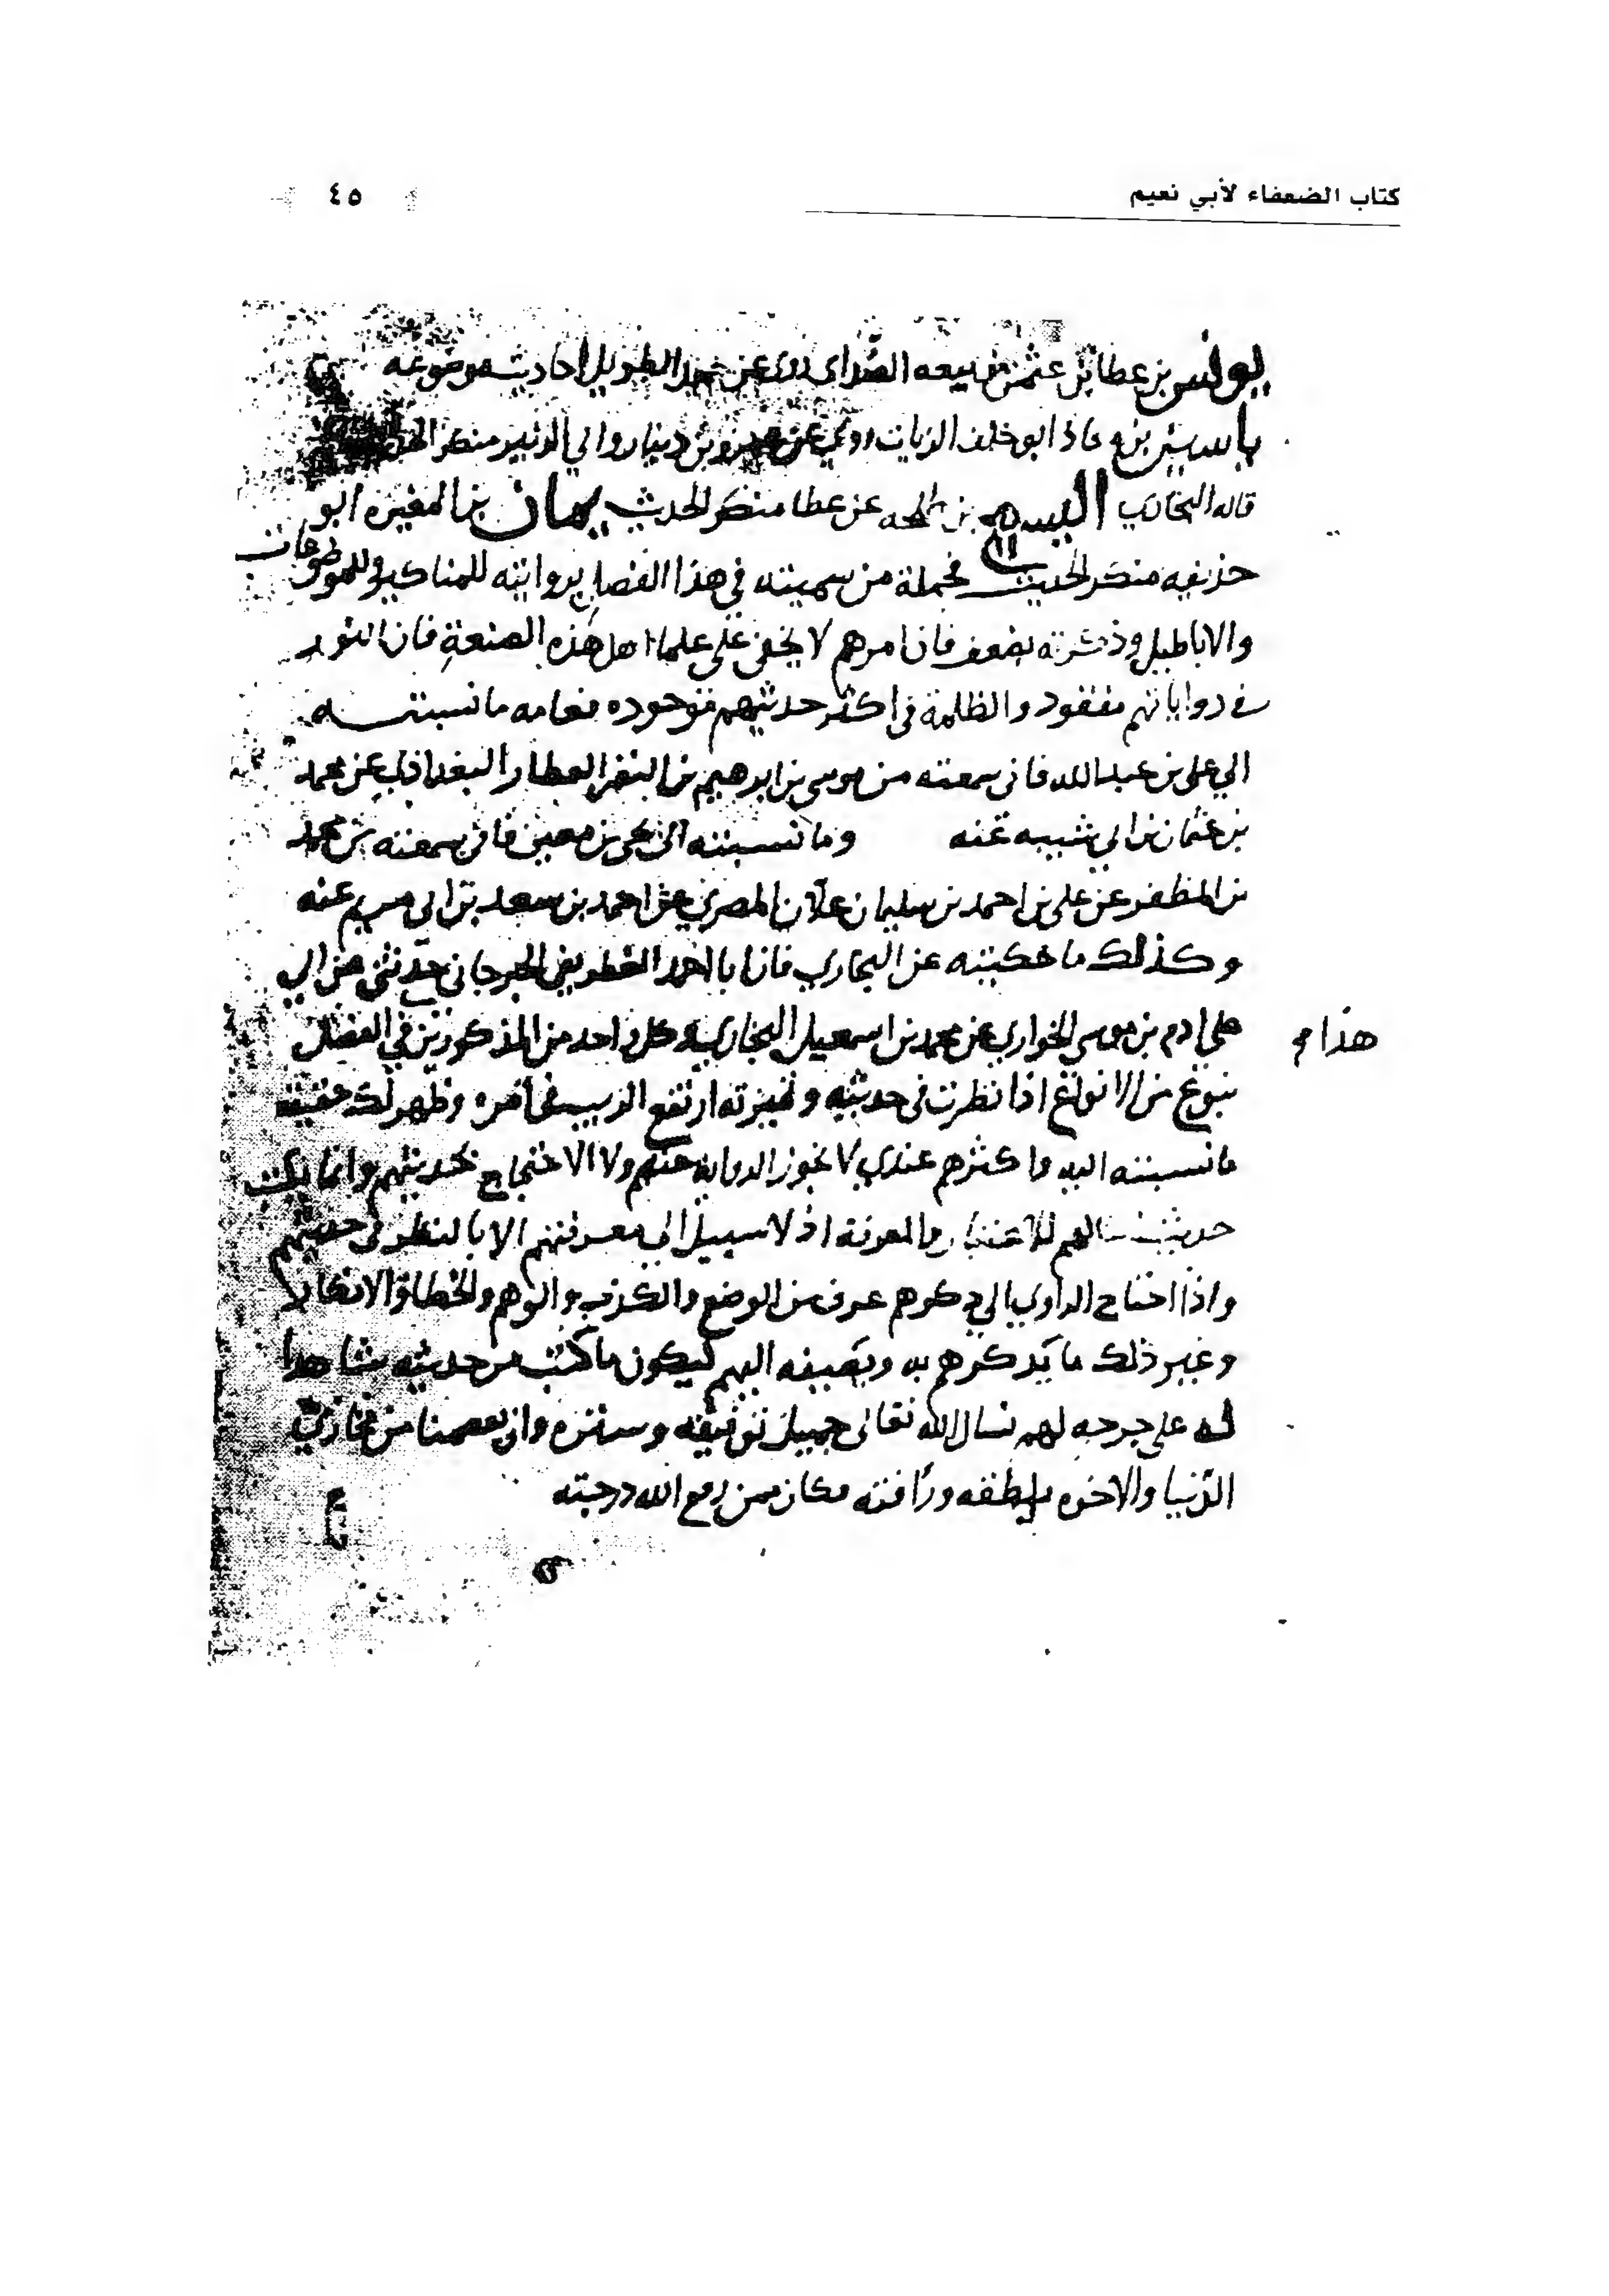 كتاب الضعفاء لأبي نعيم
٤٥
يونس بن عطا بن عثمن بن ربيعه الصداى روى عن حميد الطويل احاديث موضوعه
ياسين بن معاذ ابو خلف الزيات روى عن عمرو بن دينار وابي الزبير منكر
قاله البخاري اليسع بن طلحه عن عطا منكر الحديث يمان بن المغيره ابو
حذيفه منكر الحديث فجملة من سميته في هذا الفصل بروايته للمناكير وللموضوعات
والاباطيل وذكرته بضعف فان امرهم لا يخفى على علماء اهل هذه الصنعة فان النور
في رواياتهم مفقود والظلمة في اكثر حديثهم موجوده فعامه ما نسبته
الي علي بن عبد الله فاني سمعته من موسى بن ابرهيم بن النضر العطار البغدادي عن محمد
بن عثمان بن ابي شيبه عنه وما نسبته الى يحيى بن معين فاني سمعته من محمد
بن المظفر عن علي بن احمد بن سليمان علان المصري عن احمد بن سعد بن ابي مريم عنه
وكذلك ما حكيته عن البخاري فان ابا احمد الغطريفي الجرجاني حدثني عن ابي
هذا م
علي ادم بن موسى الخواري عن محمد بن اسمعيل البخاري وكل واحد من المذكورين في الفصل
بنوع من الانواع اذا نظرت في حديثه وتميزته ارتفع الريب في امره وظهر لك حقيقه
ما نسبته اليه واكثرهم عندي لا يجوز الروايه عنهم ولا الاحتجاج بحديثهم وانما يكتب
حديث للاعتبار والمعرفة اذ لا سبيل الى معرفتهم الا بالنظر في حديثهم
واذا احتاح الراوي الي ذكرهم عرف من الوضع والكذب والوهم والخطا والانكار
وغير ذلك ما يذكرهم به ويضيفه اليهم ليكون ما كتب من حديثه شاهدا
له على جرحه لهم نسال الله تعالى جميل توفيقه وستره وان يعصمنا من مخازي
الدنيا والاخره بلطفه ورافته مكان ممن رفع الله درجته